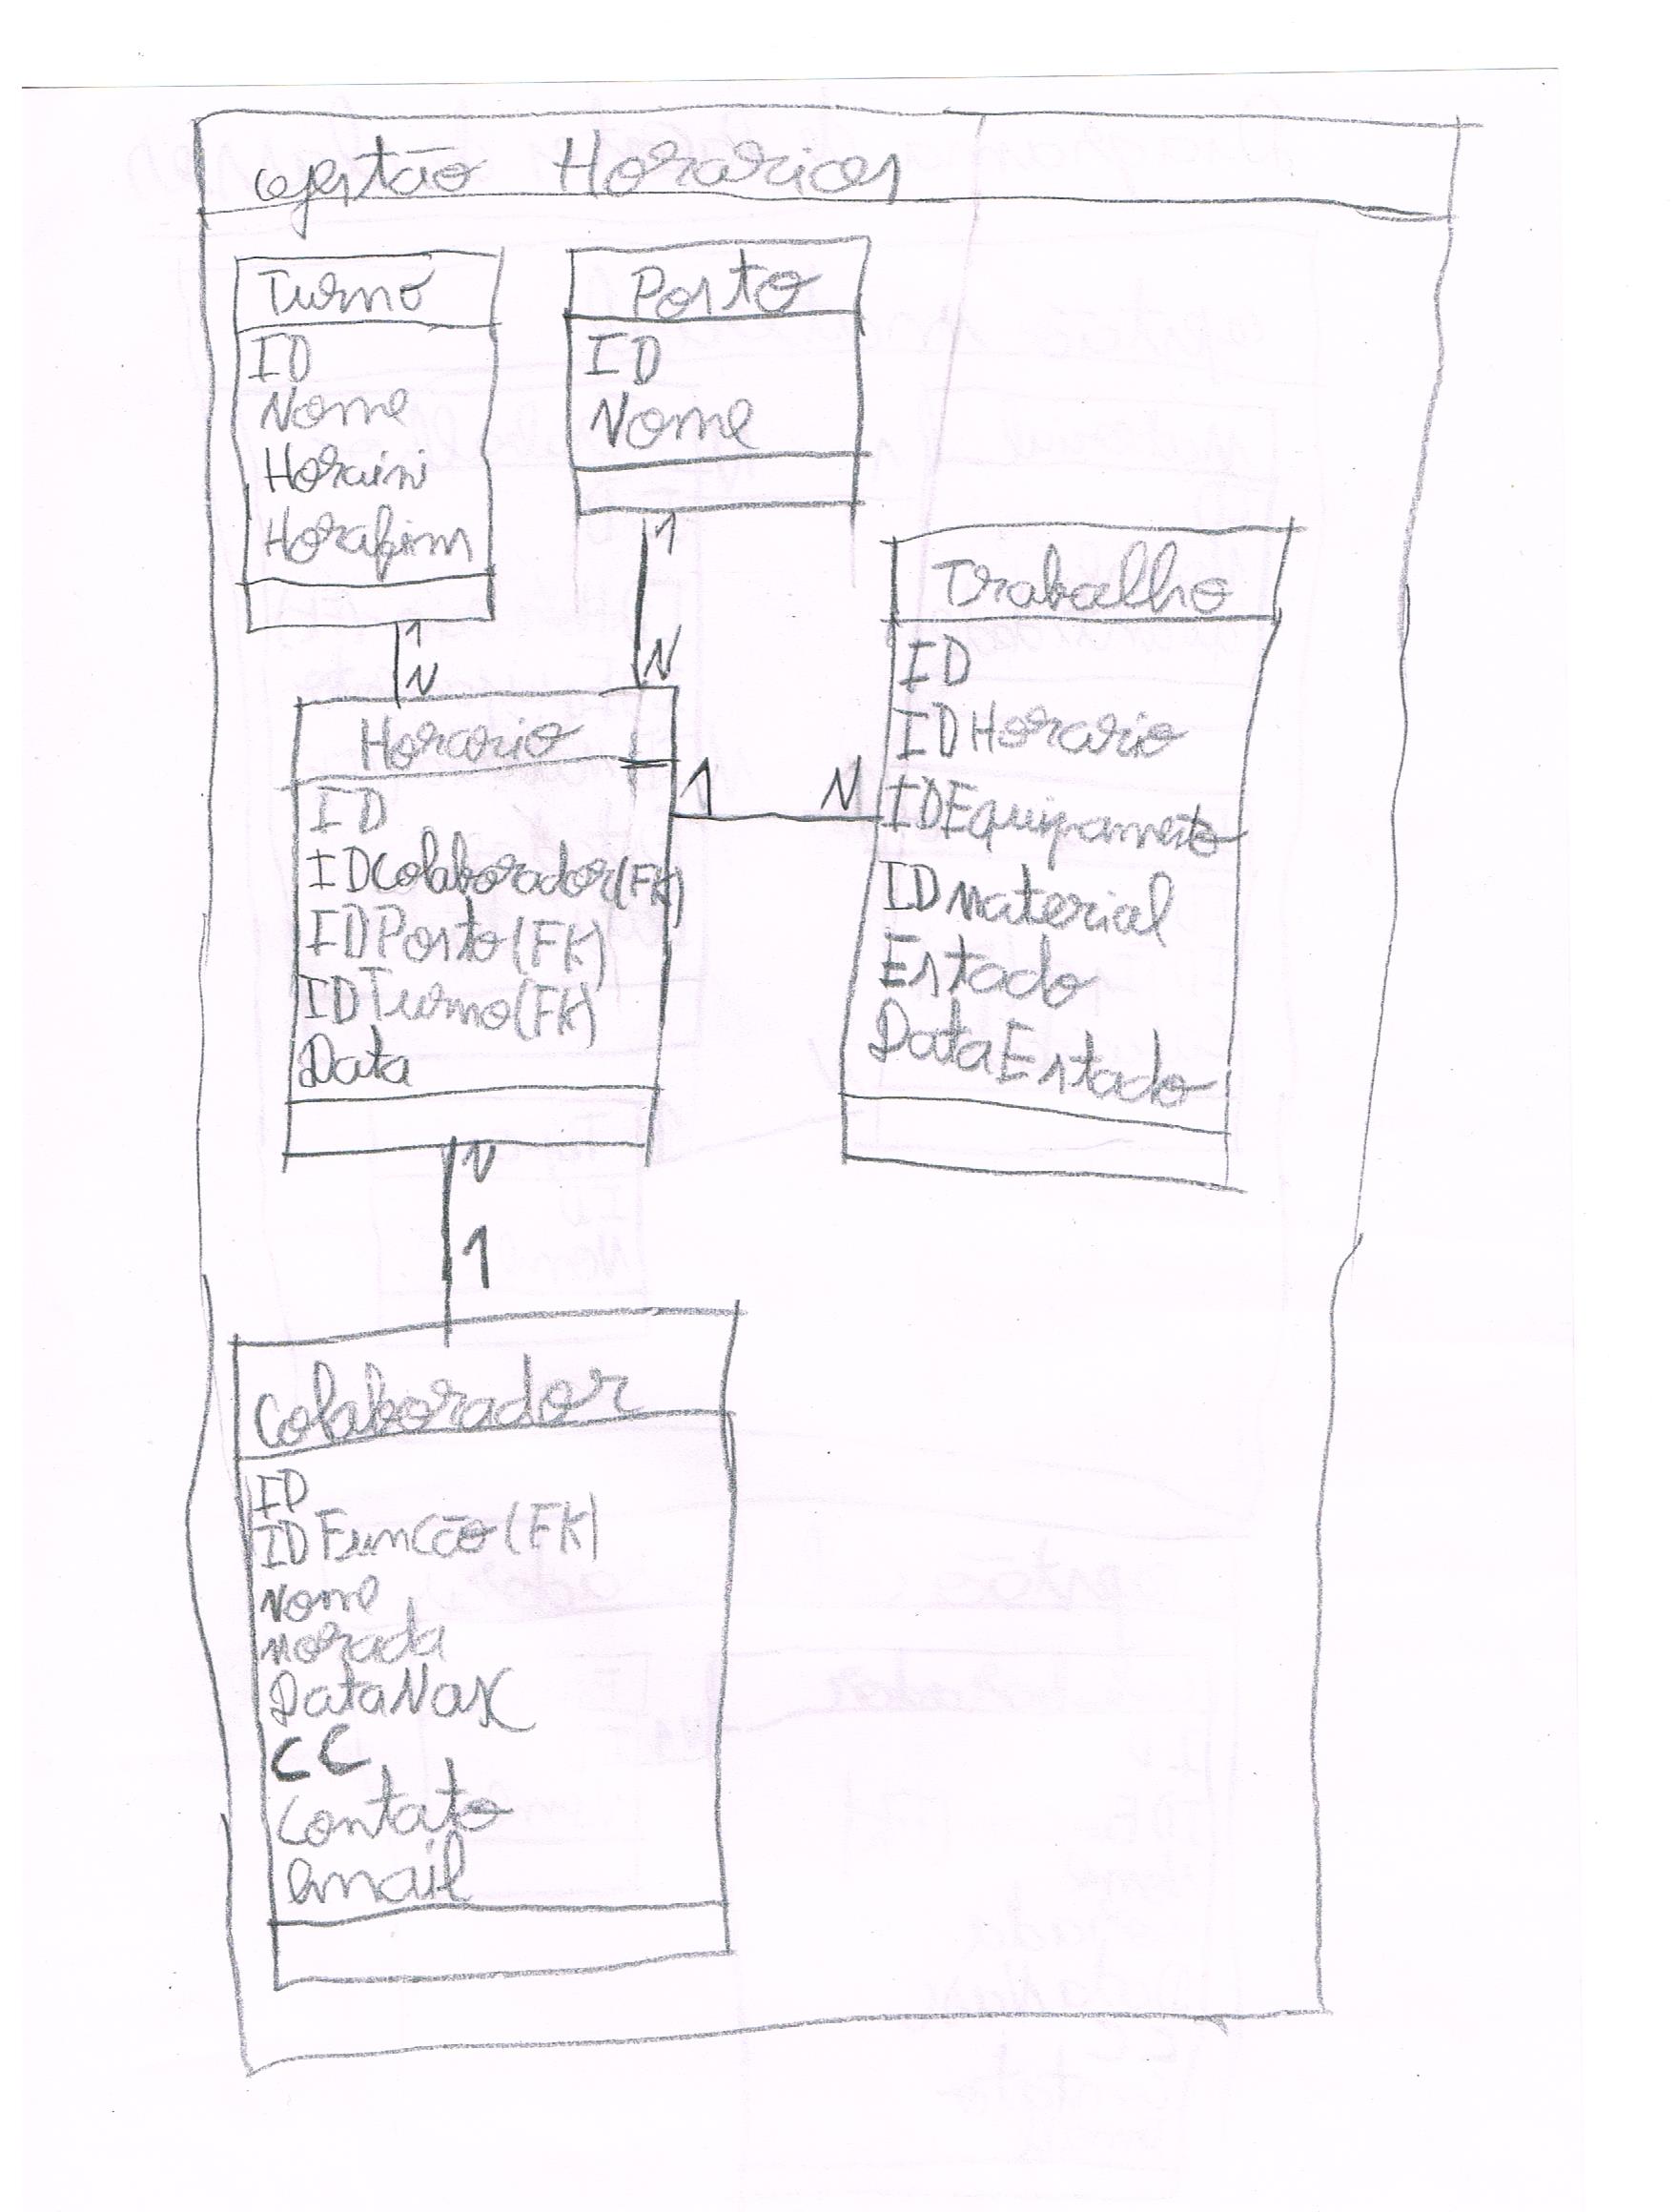 Gestão Horarios
Turno
ID
Nome
Horaini
Horafim
Posto
ID
Nome
1
N
1
N
Trabalho
ID
IDHorario
IDEquipamento
IDMaterial
Estado
DataEstado
Horario
ID
IDColaborador(FK)
IDPosto(FK)
IDTurno(FK)
Data
1 N
N
1
Colaborador
ID
IDFuncão(FK)
Nome
Morada
DataNasc
CC
Contato
Email